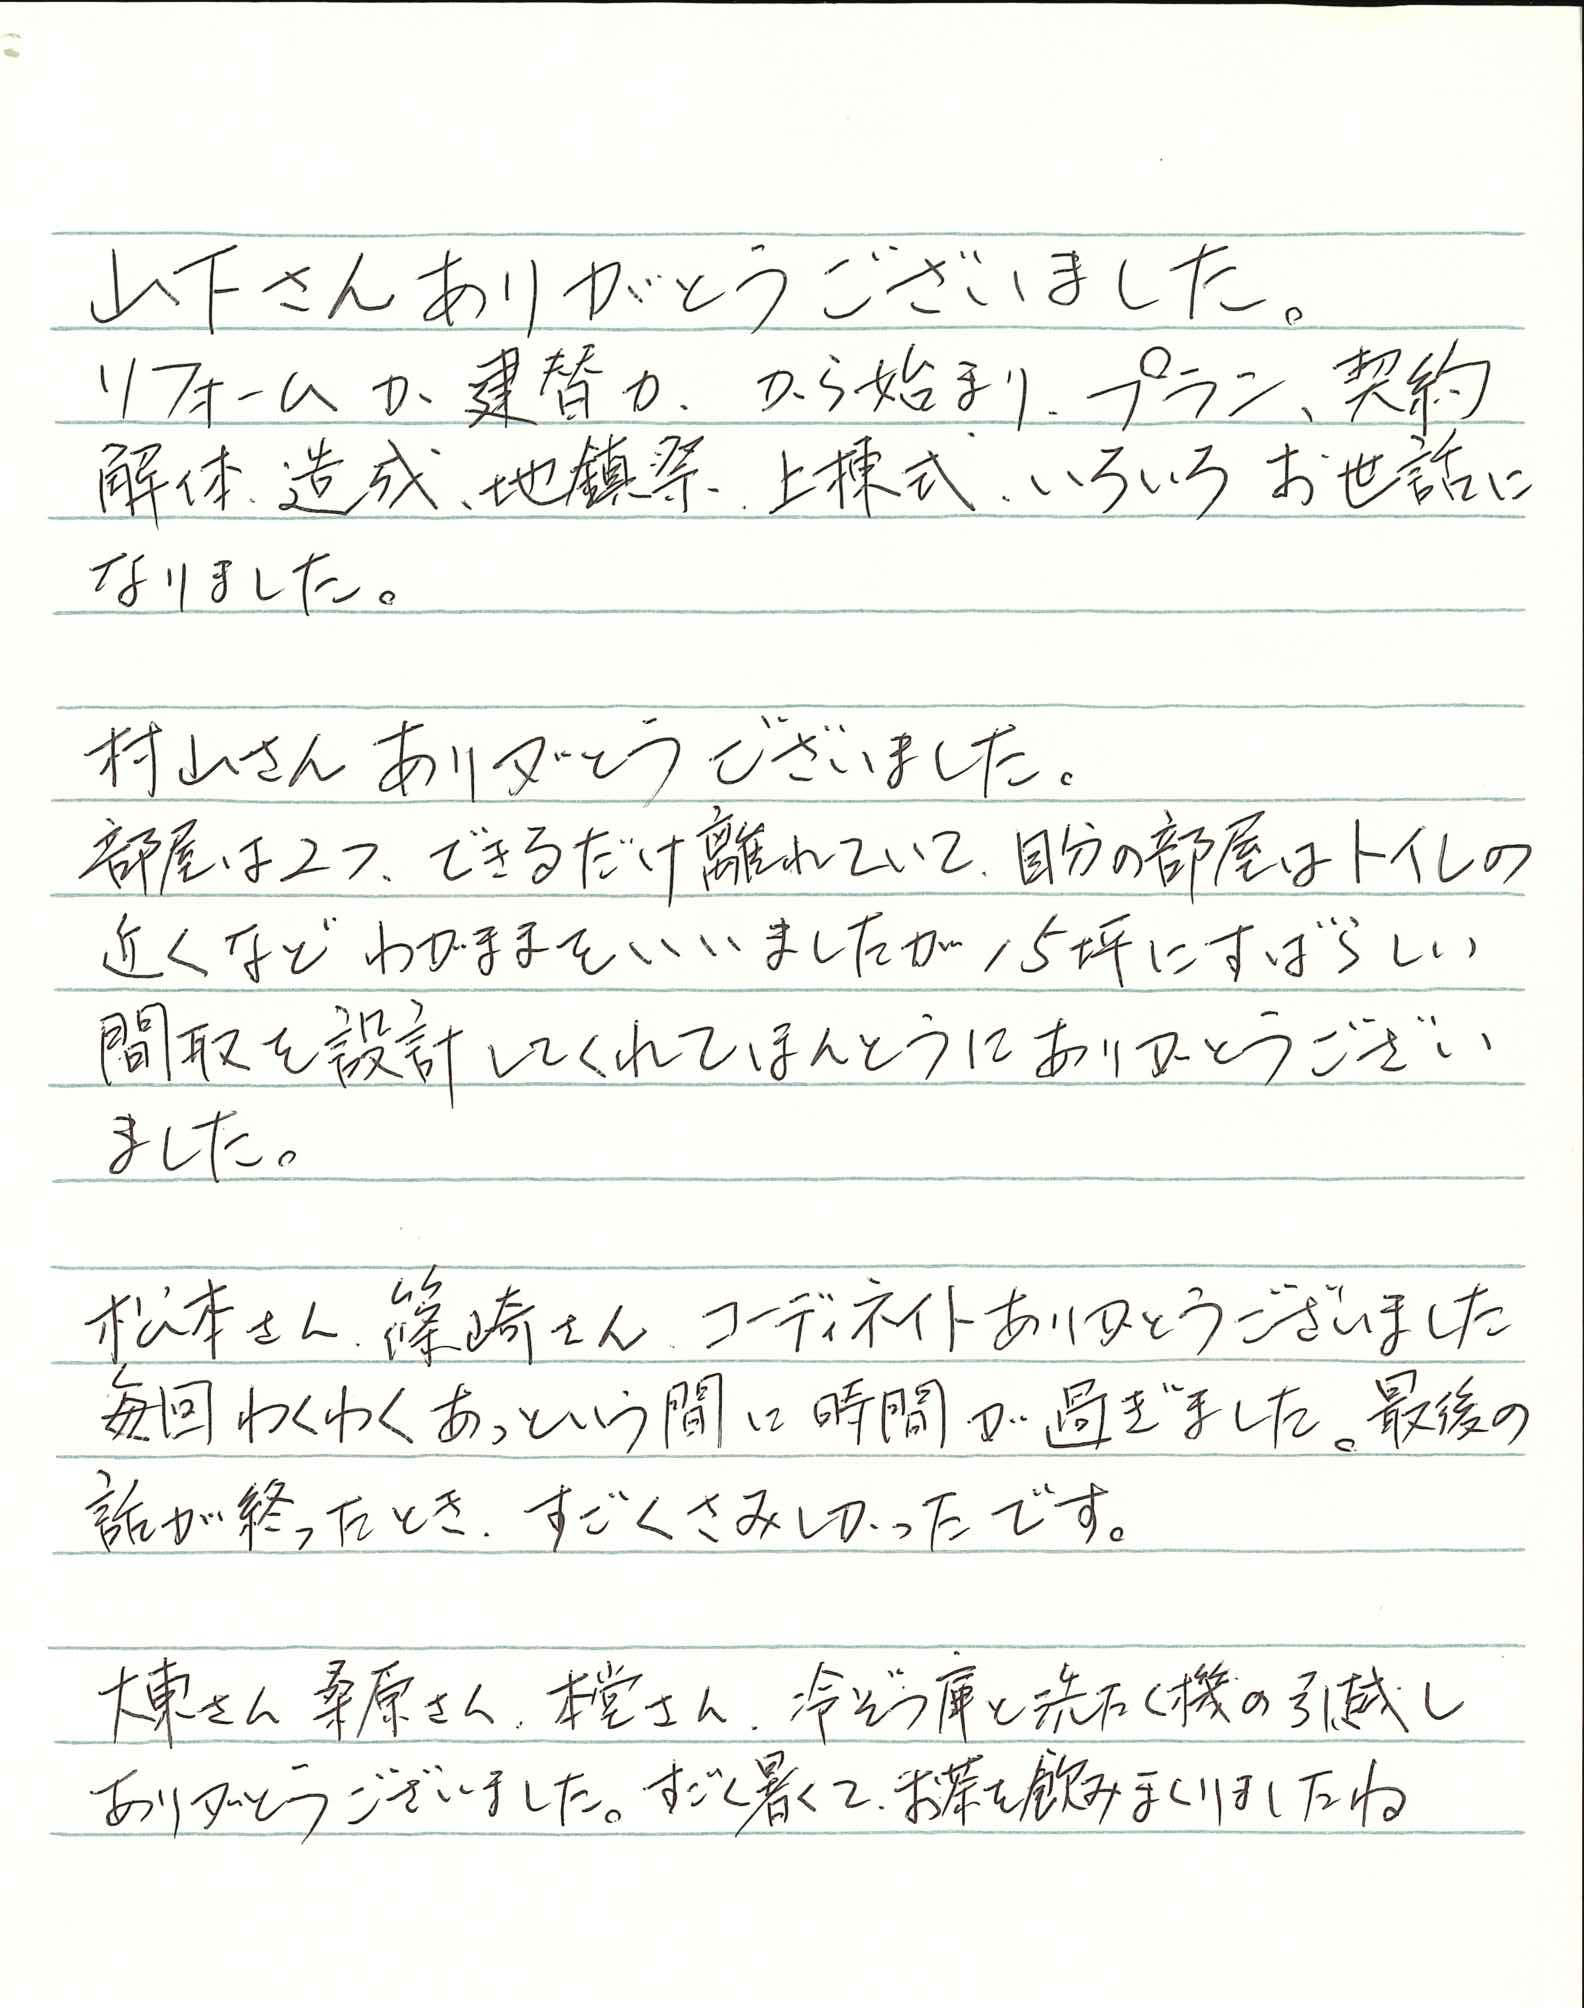 山下さんありがとうございました。
リフォームか、建替か、から始まり、プラン、契約
解体、造成、地鎮祭、上棟式、いろいろお世話に
なりました。
村山さんありがとうございました。
部屋は2つ、できるだけ離れていて、自分の部屋はトイレの
近くなどわがままをいいましたが15坪にすばらしい
間取を設計してくれてほんとうにありがとうござい
ました。
松本さん、篠崎さん、コーディネイトありがとうございました
毎回わくわくあっという間に時間が過ぎました。最後の
話が終ったとき、すごくさみしかったです。
大東さん桑原さん、本堂さん、冷ぞう庫と洗たく機の引越し
ありがとうございました。すごく暑くて、お茶を飲みまくりましたね